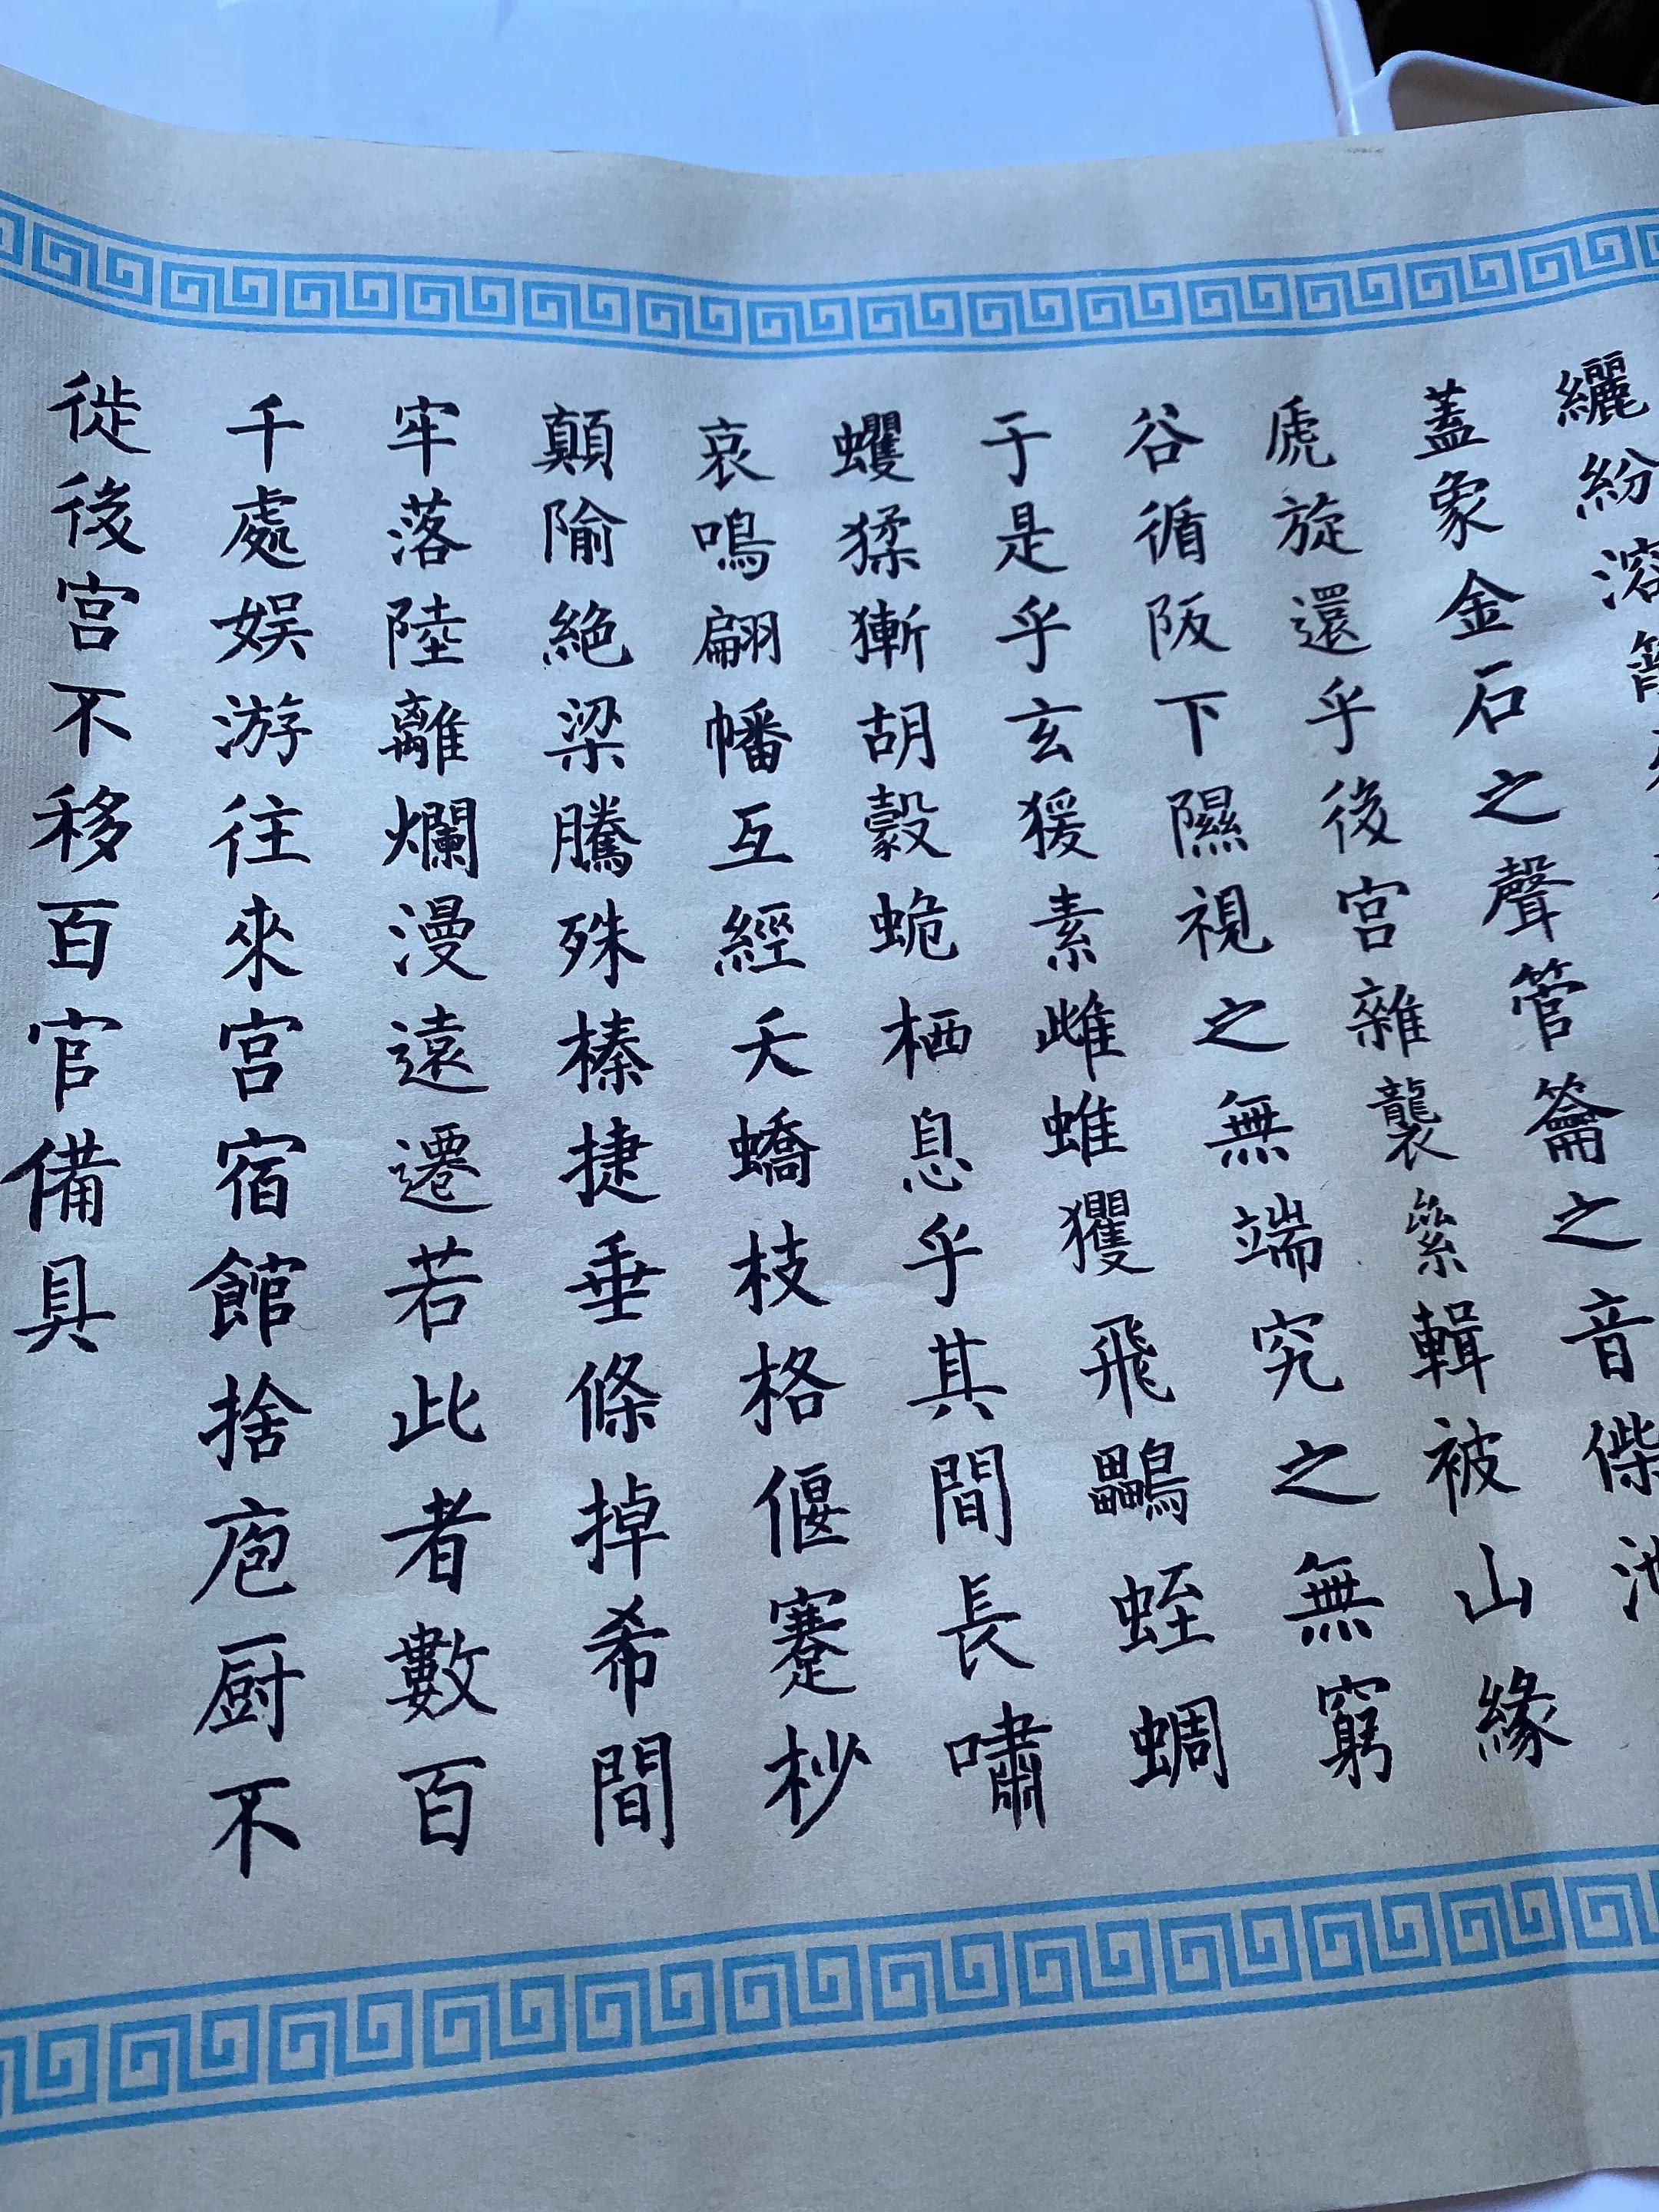 纚紛溶
蓋象金石之聲管籥之音傑池
虒旋還乎後宮雜襲絫輯被山緣
谷循阪下隰視之無端究之無窮
于是乎玄猨素雌蜼玃飛鸓蛭蜩
蠼猱獑胡豰蛫栖息乎其間長嘯
哀鳴翩幡互經夭蟜枝格偃蹇杪
顛隃絕梁騰殊榛捷垂條掉希間
牢落陸離爛漫遠遷若此者數百
千處娛游往來宮宿館捨庖厨不
徙後宮不移百官備具